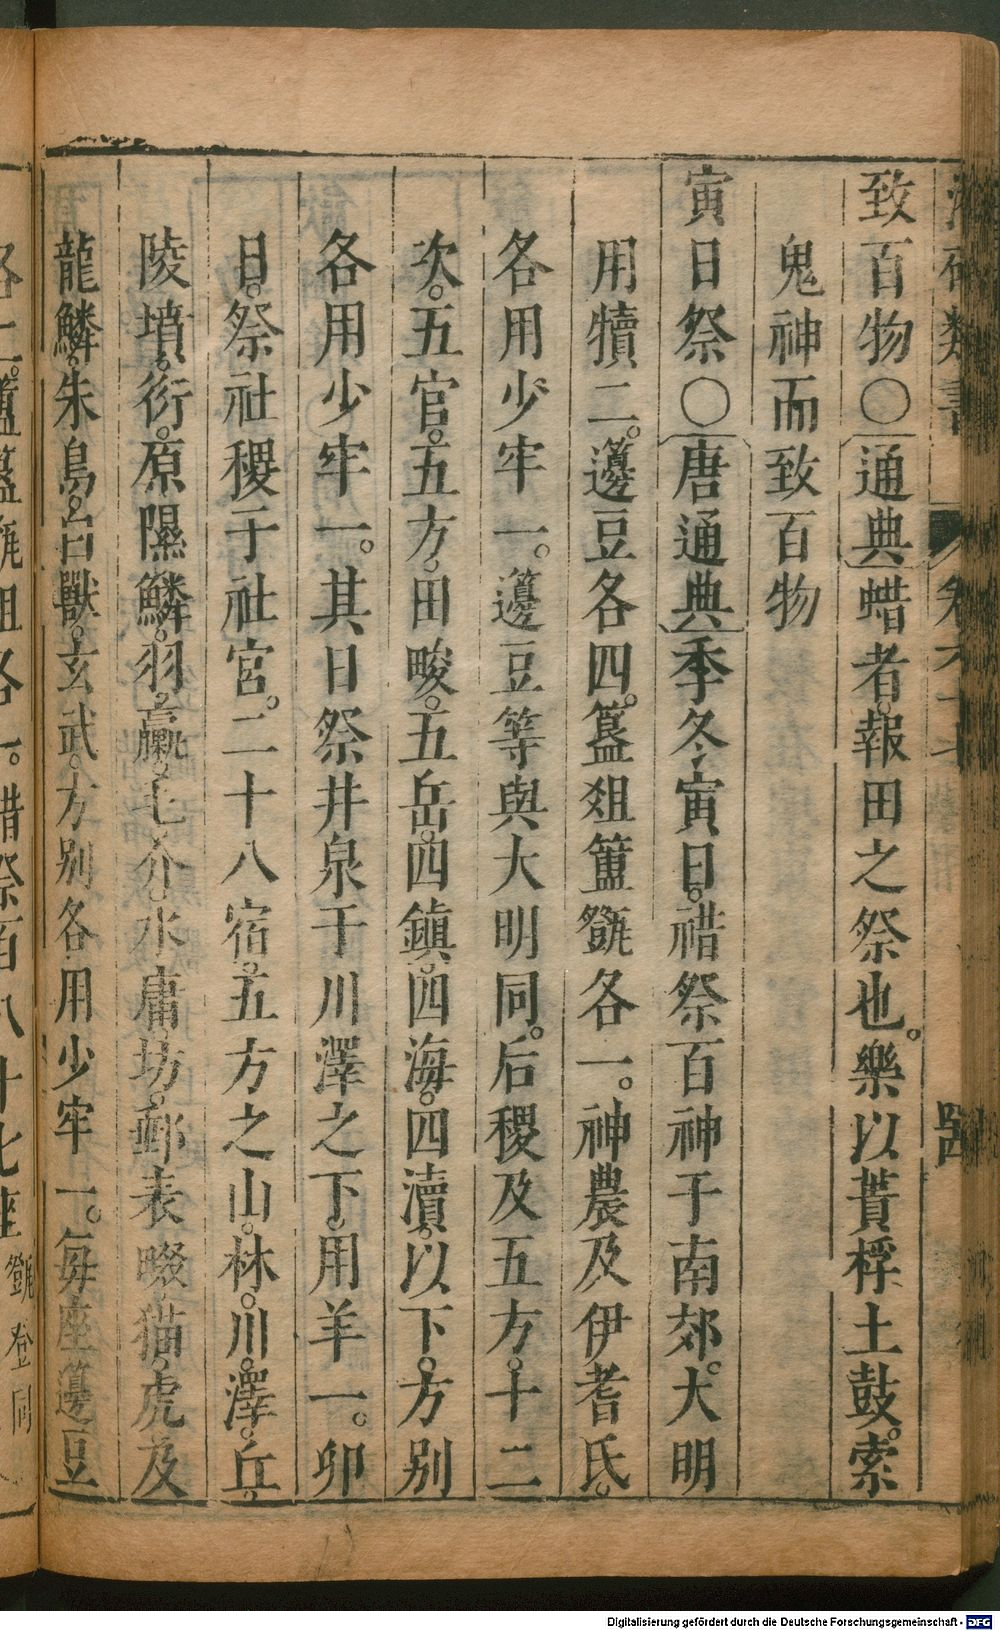 致百物〇通典蜡者。報田之祭也。樂以蕢桴土鼓。索
鬼神而致百物
寅日祭〇唐通典季冬寅日。禇祭百神于南郊。大明
用犢二。籩豆各四。簋俎簠㽅各一。神農及伊耆氏。
各用少牢一。籩豆等與大明同。后稷及五方。十二
次。五官。五方。田畯。五岳。四鎮。四海。四瀆。以下。方別
各用少牢一。其日祭井泉于川澤之下。用羊一。卯
日。祭社稷于社宮。二十八宿。五方之山。林。川。澤。丘。
陵。墳。衍。原隰鱗。羽。臝毛介。水庸坊。郵表畷。猫虎及
龍鱗。朱鳥。白獸。玄武。方別各用少牢一。每座籩豆
各二。簠簋㽅俎各一。蜡祭百八十七座
Digitalisierung gefördert durch die Deutsche Forschungsgemeinschaft - DFG